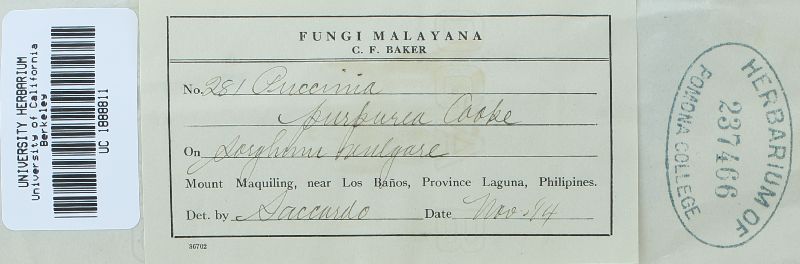 UNIVERSITY HERBARIUM
University of California
Berkeley
UC 1888811
FUNGI MALAYANA
C. F. BAKER
No. 281 Puccinia
purpurea Cooke
On Sorghum vulgare
Mount Maquiling, near Los Baños, Province Laguna, Philipines.
Det. by Saccardo Date Nov-14
36702
HERBARIUM OF
237466
POMONA COLLEGE